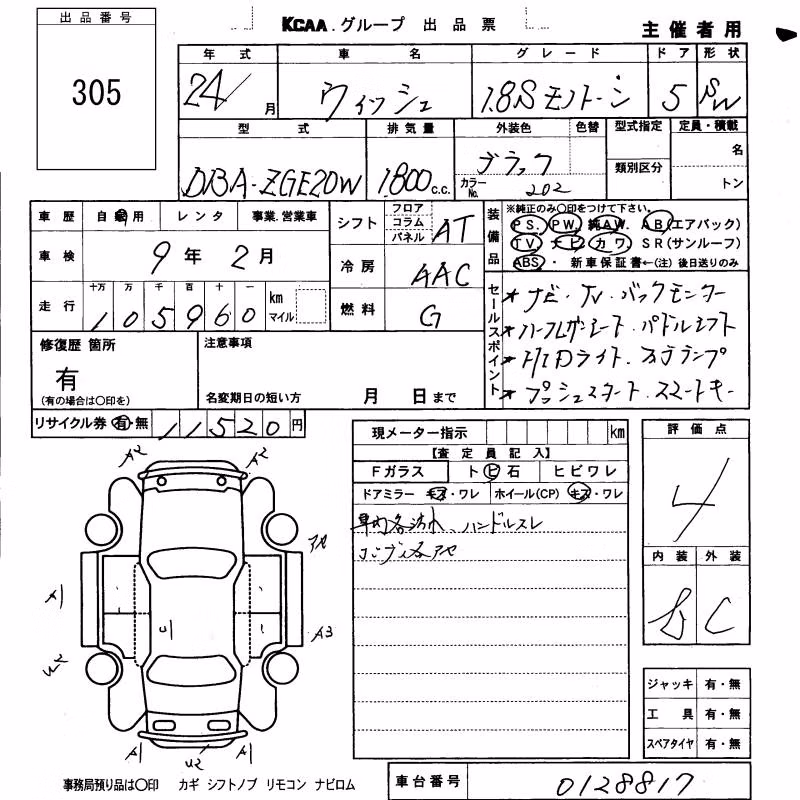 出品番号
305
KCAA.グループ 出品票
主催者用
年式 車名 グレード ドア 形状
24/ 月 ウィッシュ 1.8S モノトーン 5 SW
型式 排気量 外装色 色替 型式指定 定員・積載
DBA-ZGE20W 1,800 c.c. ブラック カラーNo. 202 類別区分 名
トン
車歴 自家用 レンタ 事業.営業車 シフト フロア コラム パネル AT
車検 9年2月 冷房 AAC
走行 十万 万 千 百 十 一 105960 km マイル 燃料 G
装備品 ※純正のみ〇印をつけて下さい。
PS. PW. 純AW. AB(エアバック)
TV ナビ カワ SR(サンルーフ)
ABS・ 新車保証書←(注) 後日送りのみ
セールスポイント
★ナビ・TV・バックモニター
★ハーフレザーシート・パドルシフト
★HIDライト・フォグランプ
★プッシュスタート・スマートキー
修復歴 箇所 注意事項
有
(有の場合は〇印を) 名変期日の短い方 月 日まで
リサイクル券 有・無 11520円
現メーター指示 km
【査定員記入】
Fガラス トビ石 ヒビワレ
ドアミラー キズ・ワレ ホイール(CP) キズ・ワレ
車内各汚れ、ハンドルスレ
評価点
4
内装 外装
C
A2 A2
A1
A3
U2
U
A1 U2 A1
ジャッキ 有・無
工具 有・無
スペアタイヤ 有・無
事務局預り品は〇印 カギ シフトノブ リモコン ナビロム
車台番号 0128817